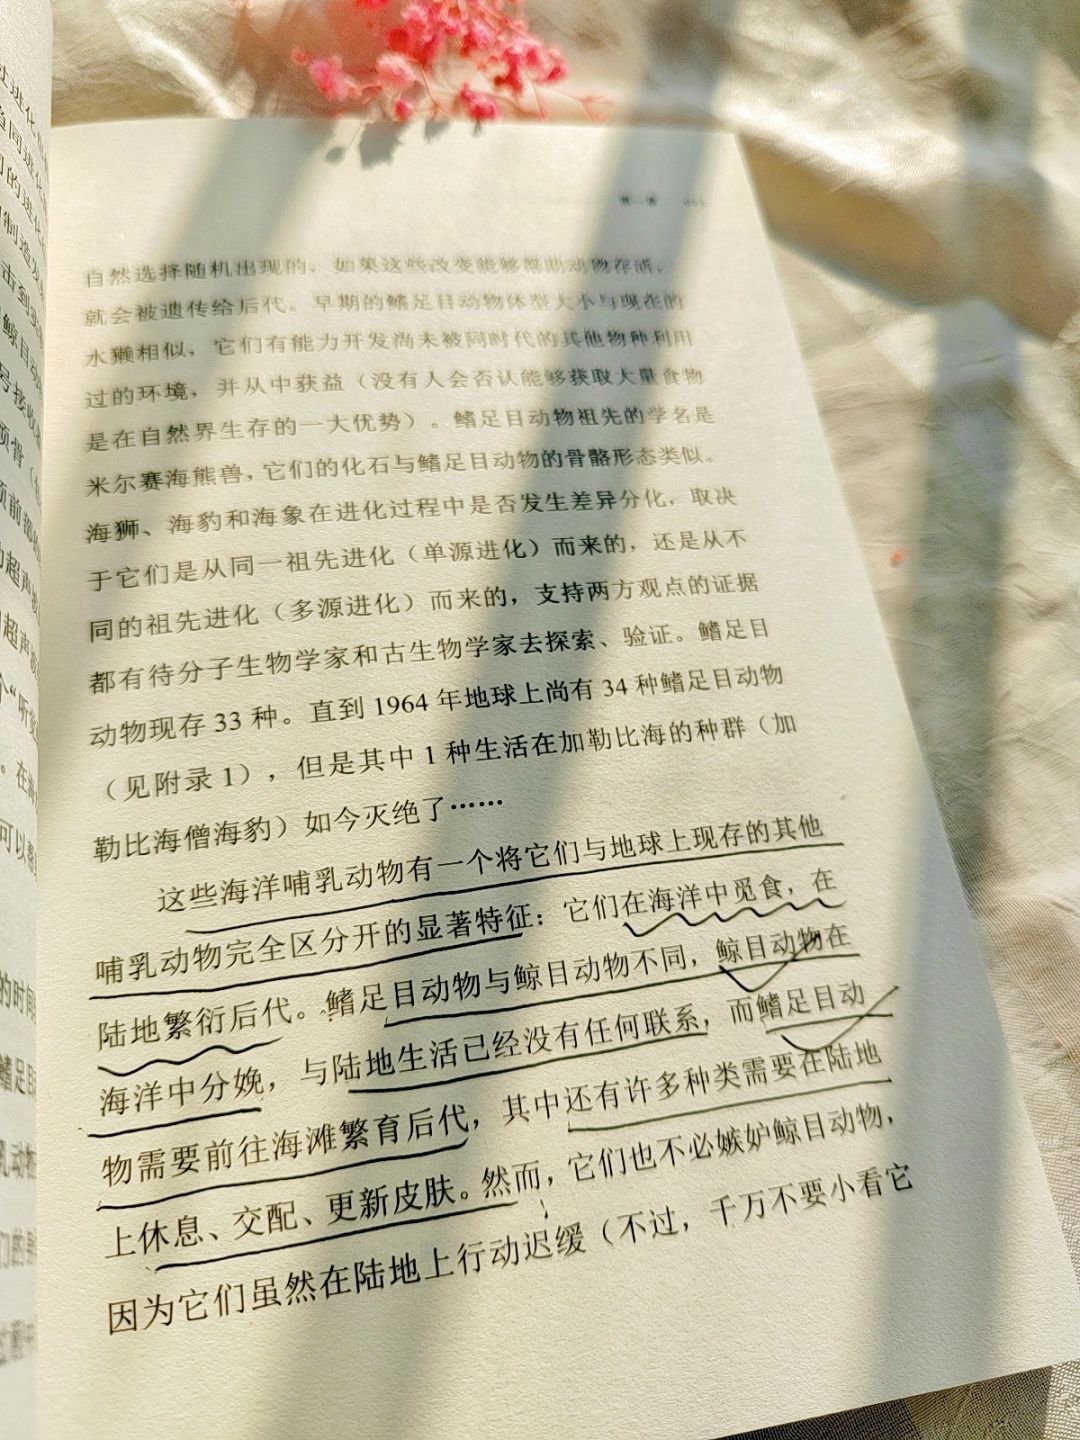 自然选择随机出现的，如果这些改变能够帮助动物存活，
就会被遗传给后代。早期的鳍足目动物体型大小与现在的
水獭相似，它们有能力开发尚未被同时代的其他物种利用
过的环境，并从中获益（没有人会否认能够获取大量食物
是在自然界生存的一大优势）。鳍足目动物祖先的学名是
米尔赛海熊兽，它们的化石与鳍足目动物的骨骼形态类似。
海狮、海豹和海象在进化过程中是否发生差异分化，取决
于它们是从同一祖先进化（单源进化）而来的，还是从不
同的祖先进化（多源进化）而来的，支持两方观点的证据
都有待分子生物学家和古生物学家去探索、验证。鳍足目
动物现存 33 种。直到 1964 年地球上尚有 34 种鳍足目动物
（见附录 1），但是其中 1 种生活在加勒比海的种群（加
勒比海僧海豹）如今灭绝了……
这些海洋哺乳动物有一个将它们与地球上现存的其他
哺乳动物完全区分开的显著特征：它们在海洋中觅食，在
陆地繁衍后代。鳍足目动物与鲸目动物不同，鲸目动物在
海洋中分娩，与陆地生活已经没有任何联系，而鳍足目动
物需要前往海滩繁育后代，其中还有许多种类需要在陆地
上休息、交配、更新皮肤。然而，它们也不必嫉妒鲸目动物，
因为它们虽然在陆地上行动迟缓（不过，千万不要小看它